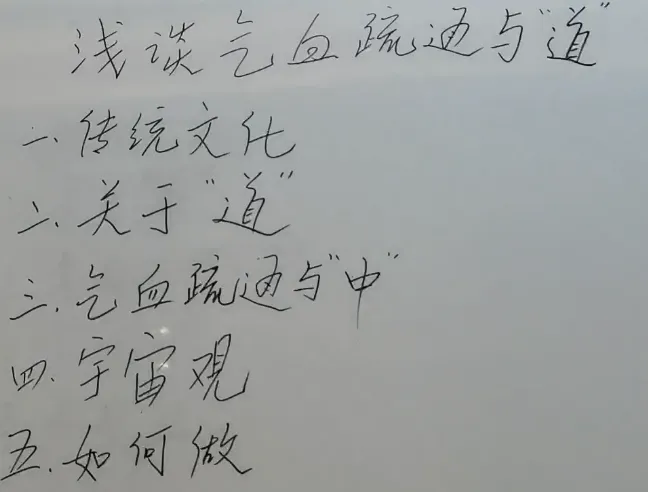 浅谈气血疏通与"道"
一、传统文化
二、关于"道"
三、气血疏通与"中"
四、宇宙观
五、如何做